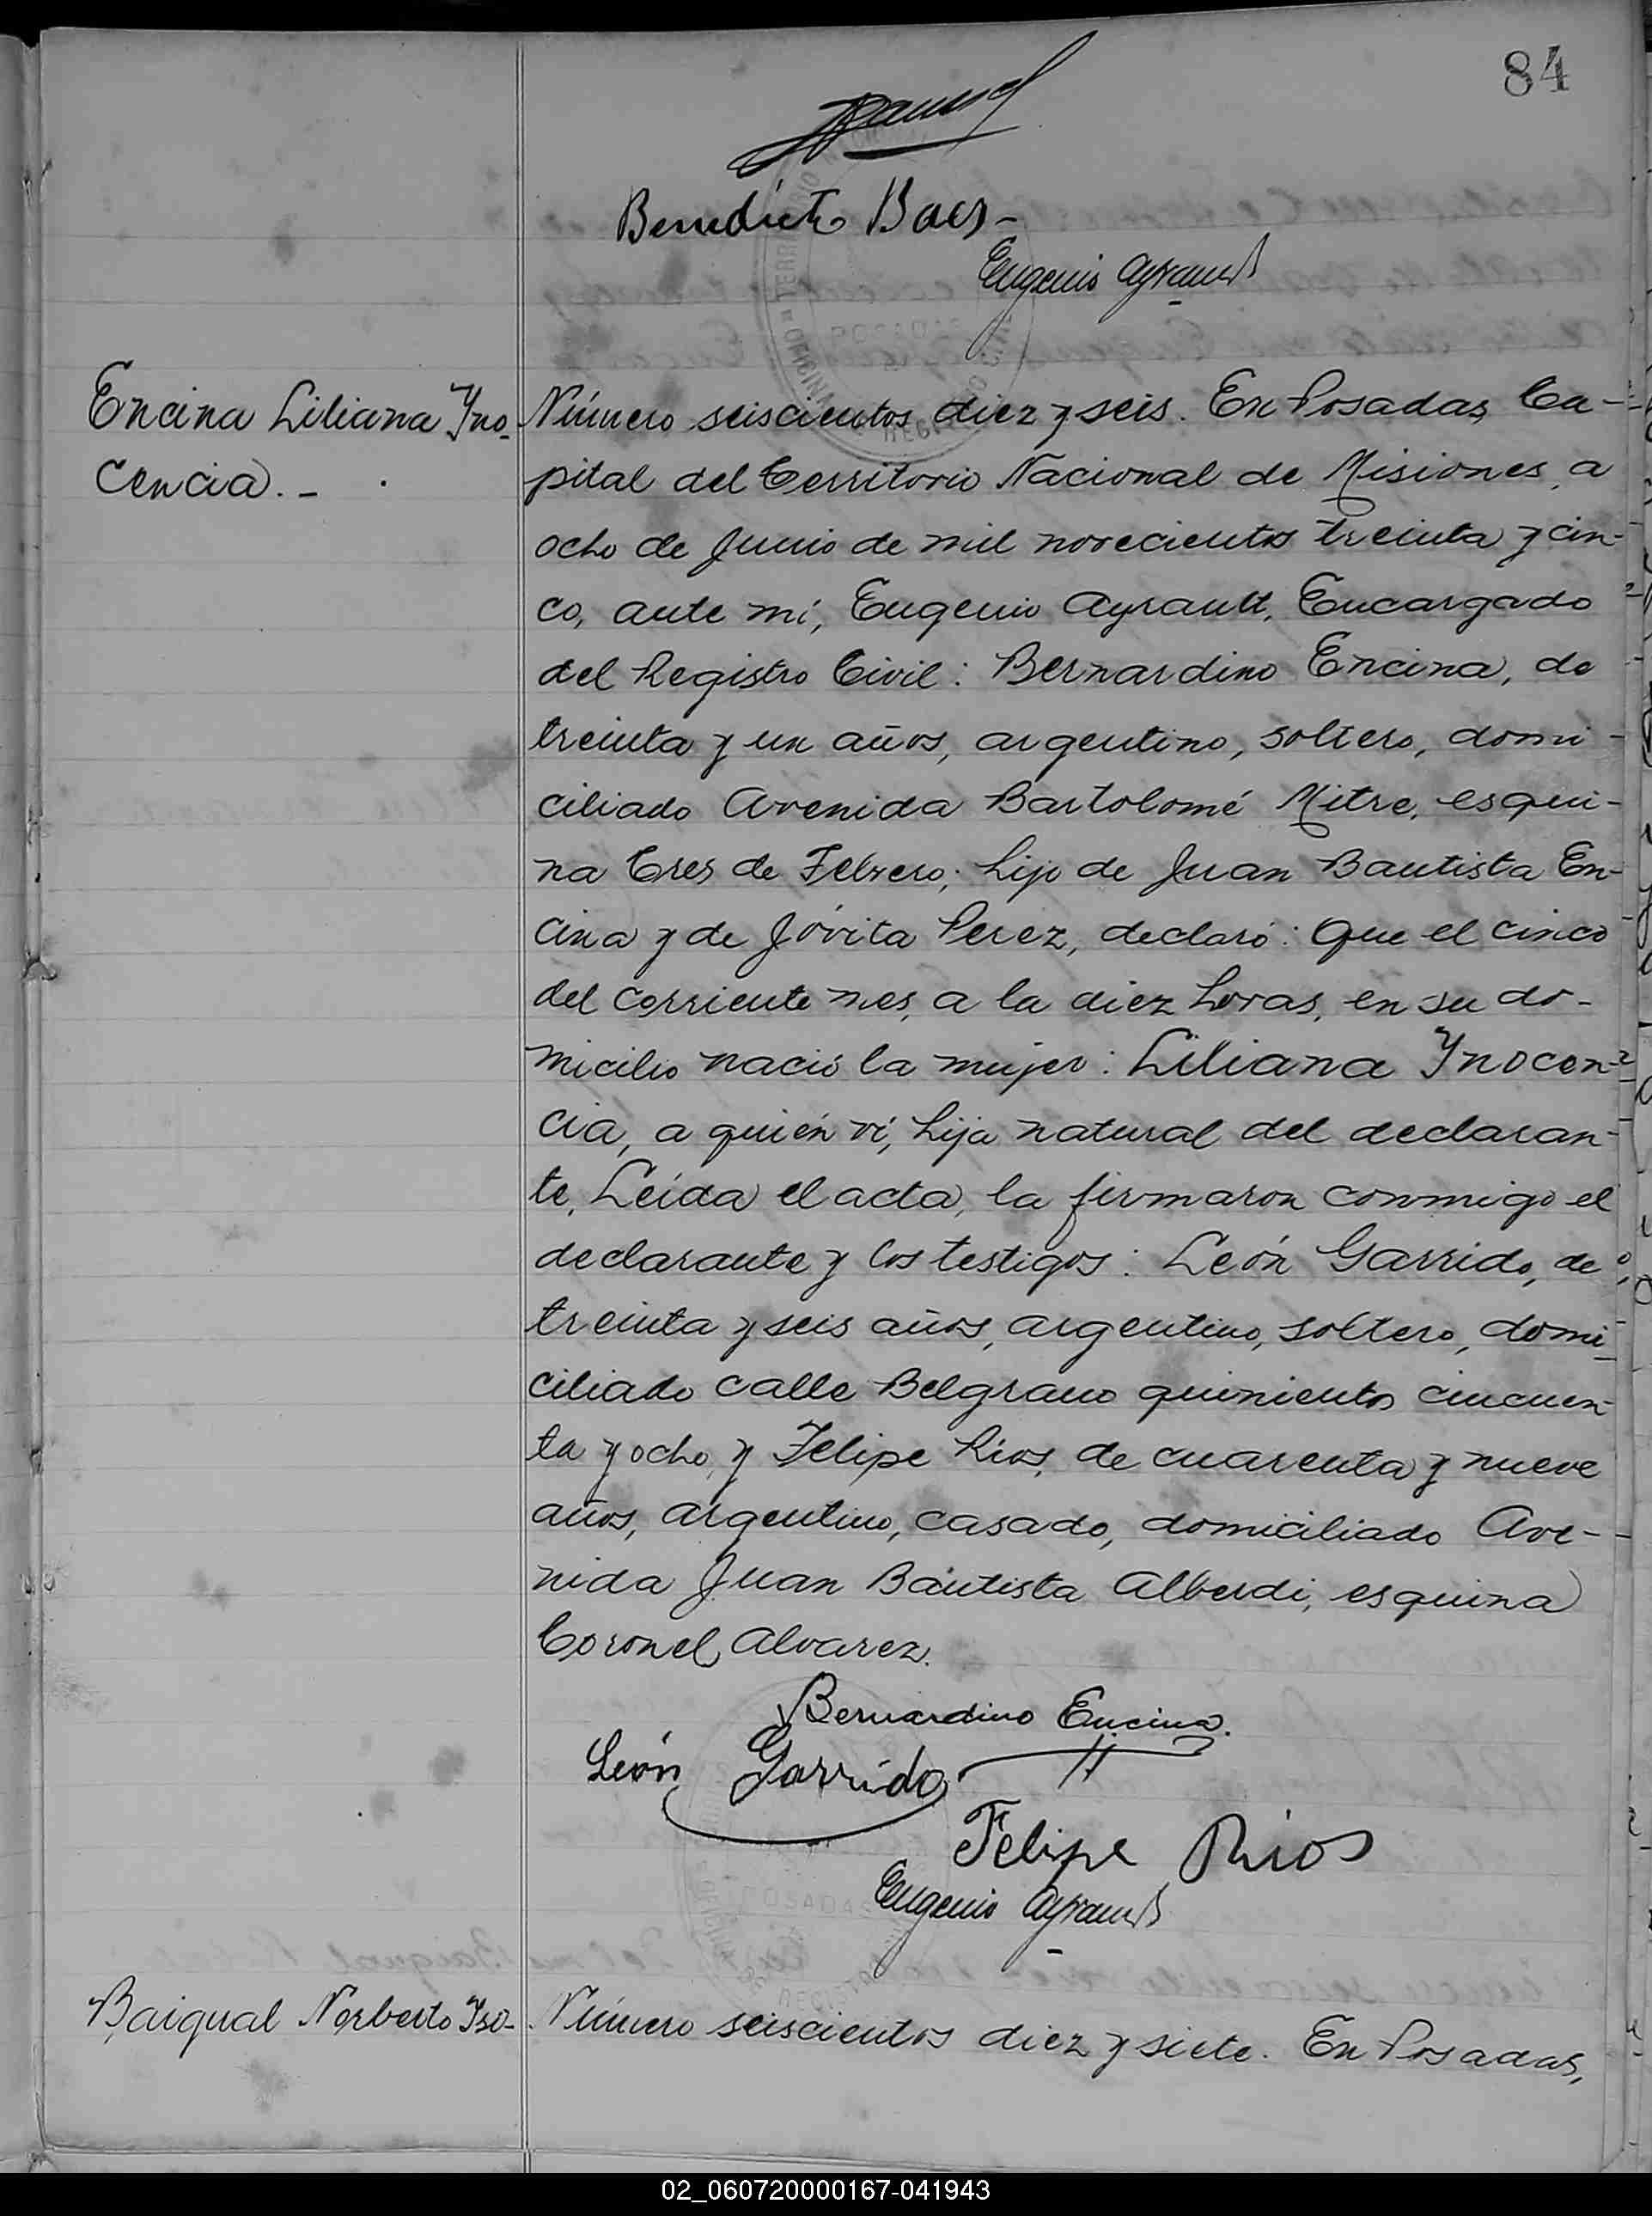 84
Benedicto Baes
Eugenio Ayrault
Encina Liliana Yno-
cencia.-
Número seiscientos diez y seis. En Posadas, Ca-
pital del Territorio Nacional de Misiones, a
ocho de Junio de mil novecientos treinta y cin-
co, ante mí, Eugenio Ayrault, Encargado
del Registro Civil: Bernardino Encina, de
treinta y un años, argentino, soltero, domi-
ciliado Avenida Bartolomé Mitre, esqui-
na Tres de Febrero; hijo de Juan Bautista En-
cina y de Jóvita Perez, declaró: Que el cinco
del corriente mes, a la diez horas, en su do-
micilio nació la mujer: Liliana Ynocen-
cia, a quién ví, hija natural del declaran-
te, Leída el acta, la firmaron conmigo el
declarante y los testigos: León Garrido, de
treinta y seis años, argentino, soltero, domi-
ciliado calle Belgrano quinientos cincuen-
ta y ocho, y Felipe Ríos, de cuarenta y nueve
años, argentino, casado, domiciliado Ave-
nida Juan Bautista Alberdi, esquina
Coronel Alvarez.
Bernardino Encina.
León Garrido
Felipe Rios
Eugenio Ayrault
Baigual Norberto Yso-
Número seiscientos diez y siete. En Posadas,
02_060720000167-041943